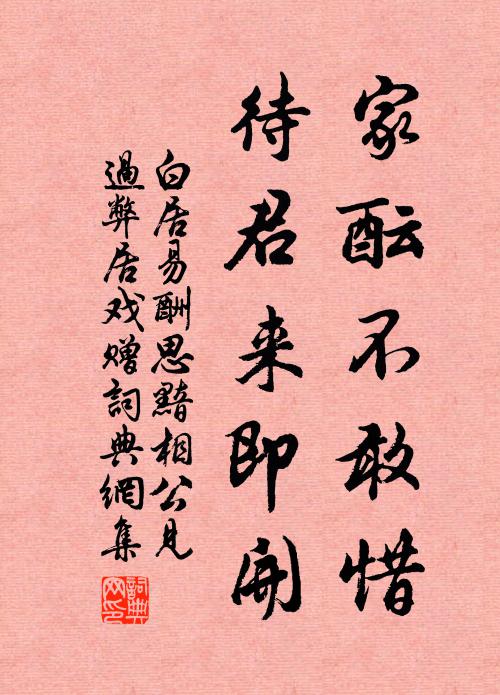 家酝不敢惜
待君来即開
白居易酬思黯相公見
過弊居戏赠詞典網集
詞典网印